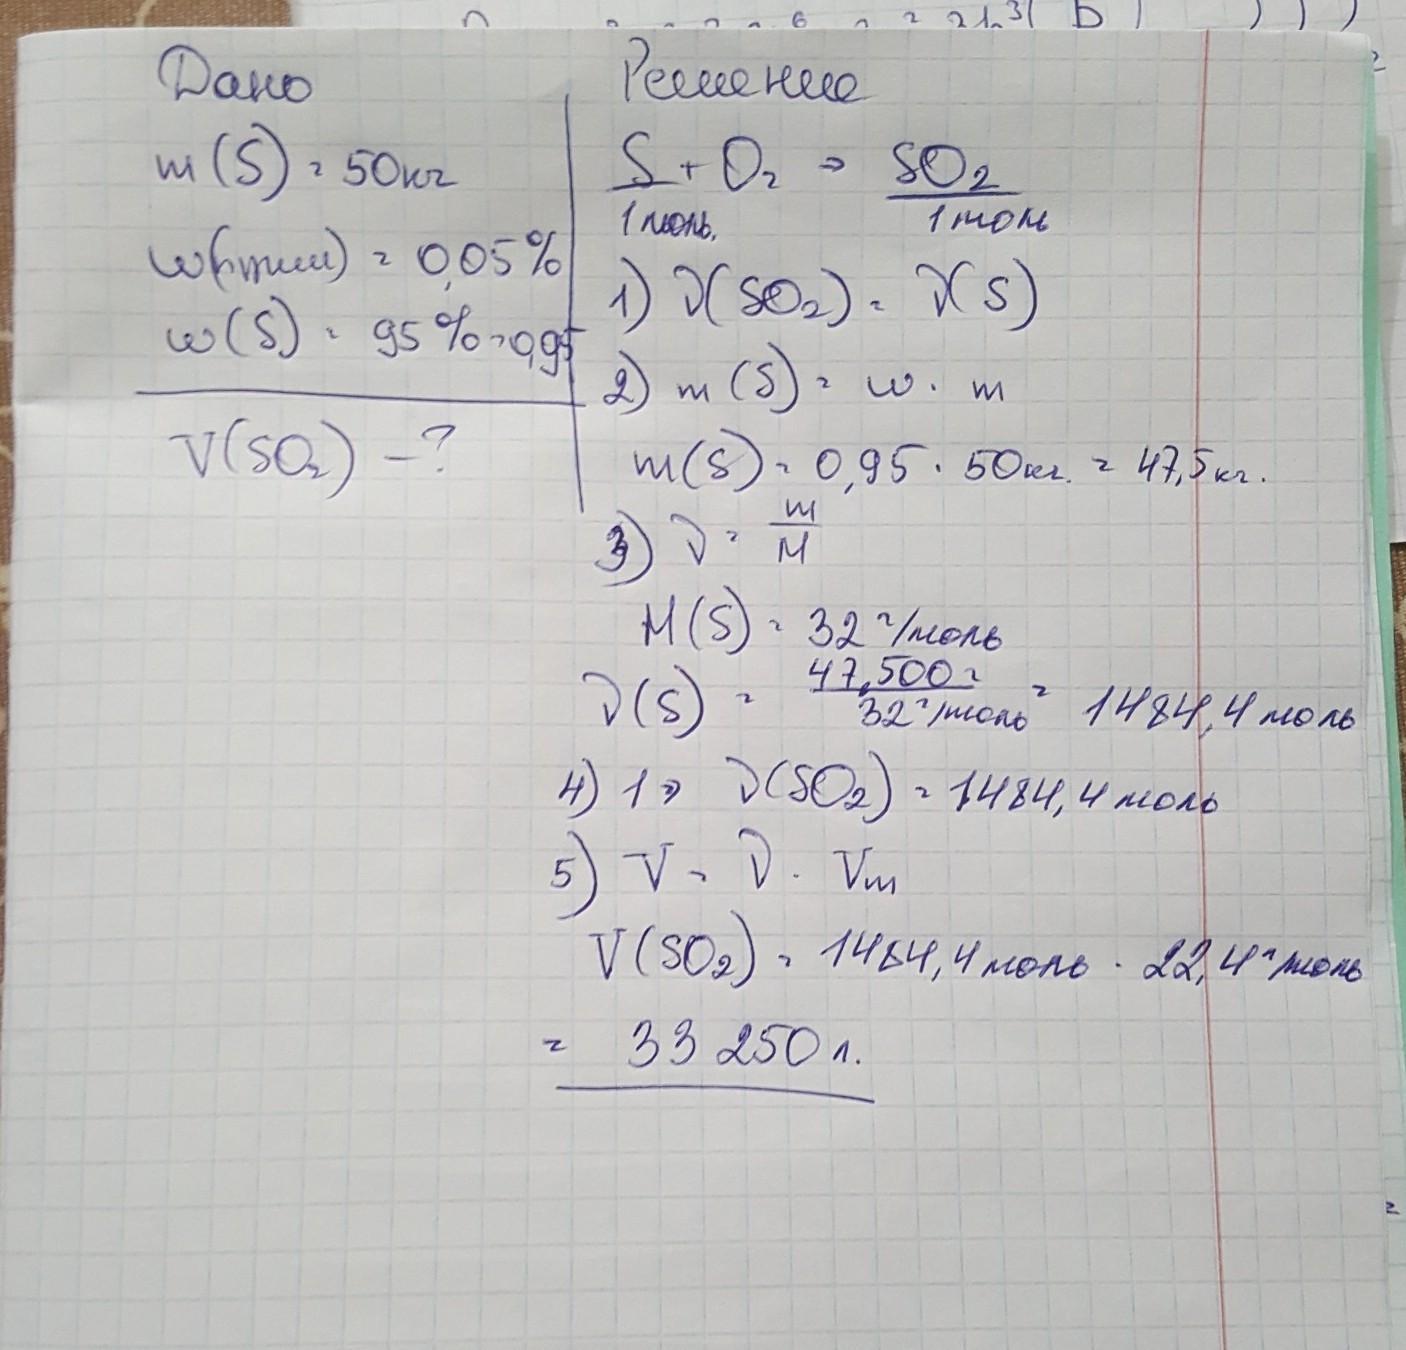 Дано
m(S) = 50кг
w(прим) = 0,05%
w(S) = 95% = 0,95
V(SO2) - ?
Решение
S + O2 => SO2
1 моль. 1 моль
1) ν(SO2) = ν(S)
2) m(S) = w · m
m(S) = 0,95 · 50кг. = 47,5кг.
3) ν = m/M
M(S) = 32 г/моль
ν(S) = 47.500г / 32 г/моль = 1484,4 моль
4) 1 => ν(SO2) = 1484,4 моль
5) V = ν · Vm
V(SO2) = 1484,4 моль · 22,4 л/моль
= 33 250 л.